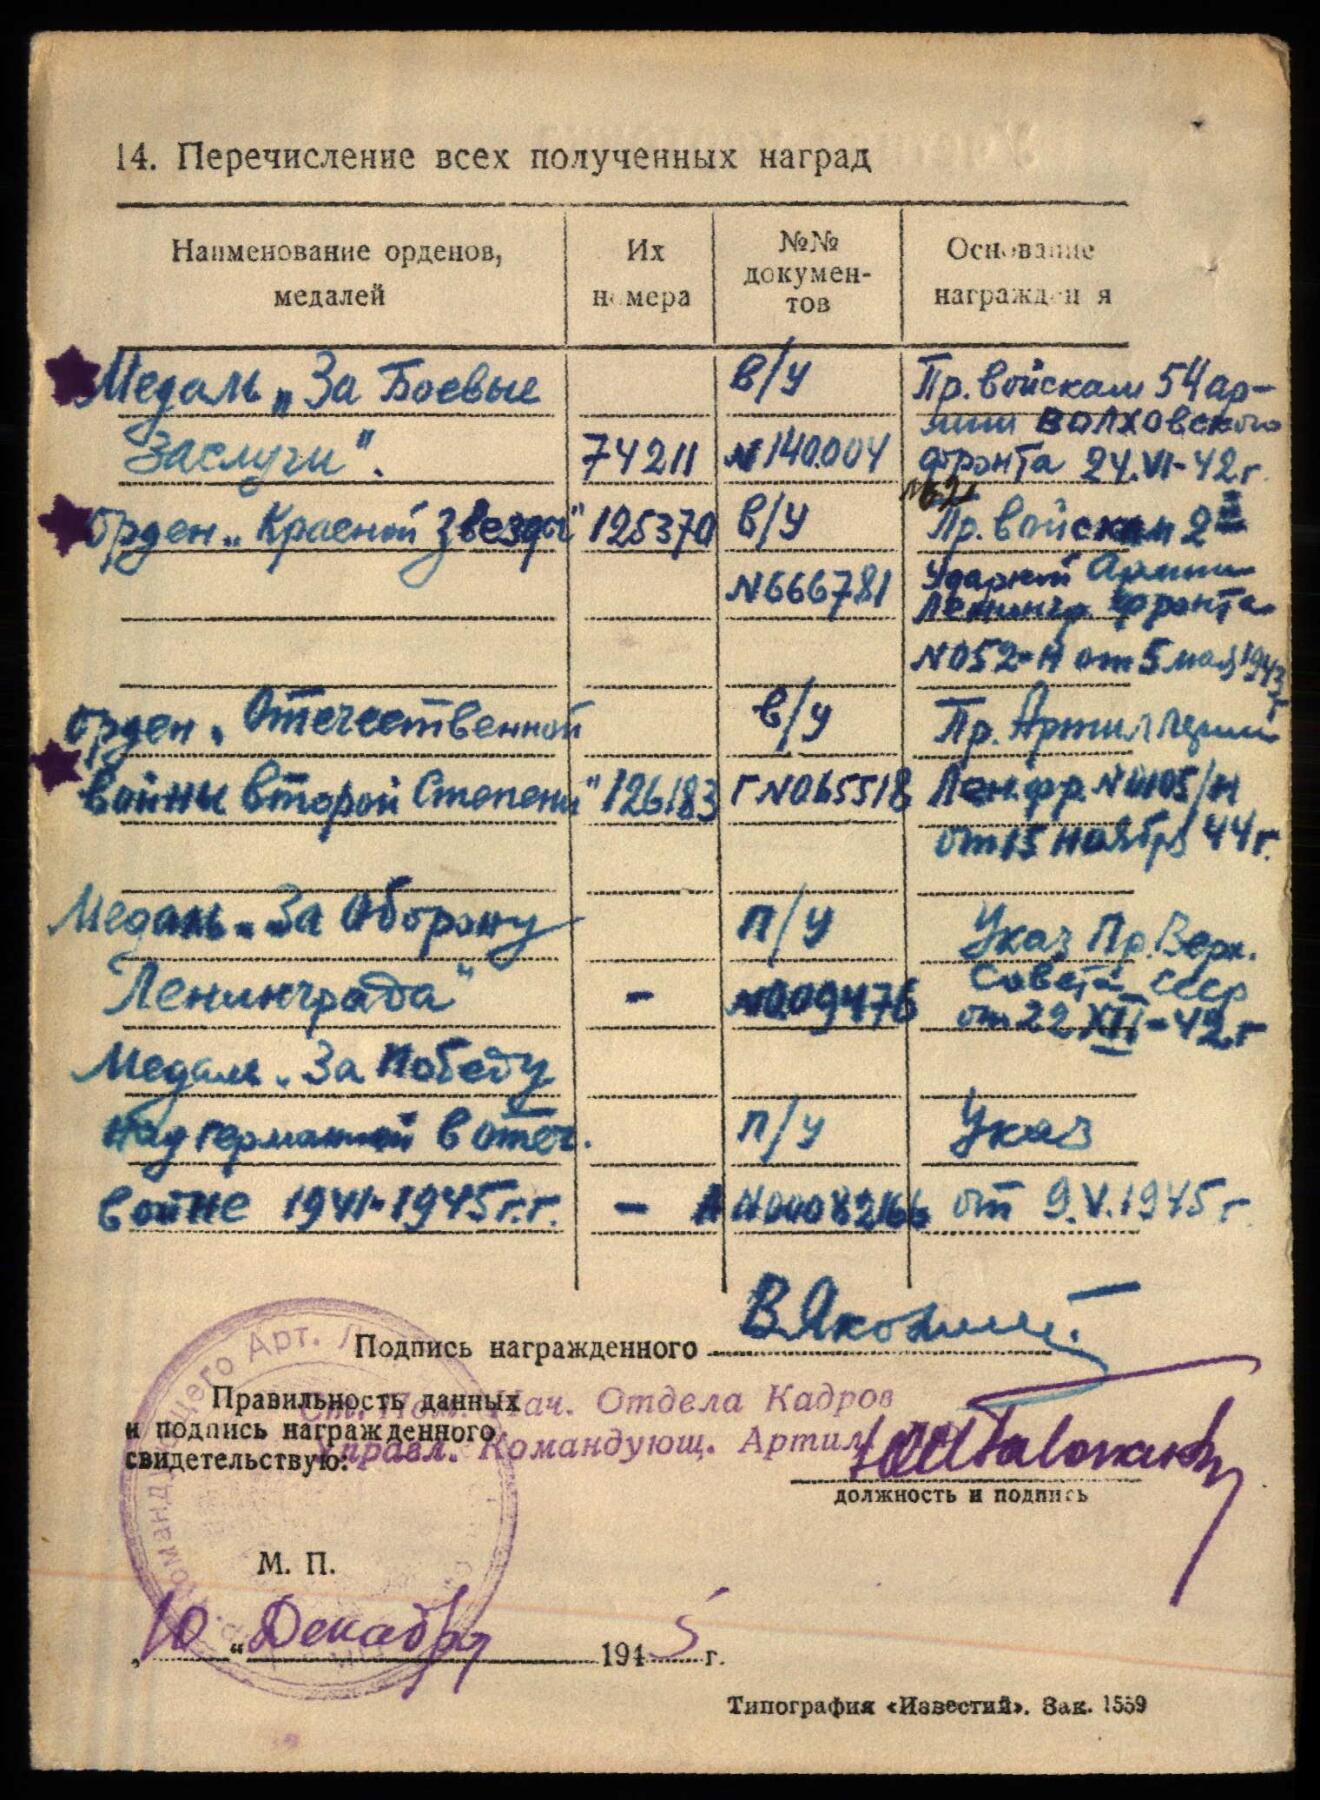 14. Перечисление всех полученных наград
Наименование орденов,
медалей
Их
номера
№№
докумен-
тов
Основание
награждения
Медаль „За Боевые
Заслуги".
74211
в/у
№140.004
Пр. войскам 54 ар-
мии Волховского
фронта 24.VI-42 г.
Орден „Красной Звезды"
125370
в/у
N666781
Пр. войскам 2й
Ударной Армии
Ленингр. фронта
N052-н от 5 мая 1943 г
Орден „Отечественной
войны второй Степени"
126183
в/у
Г N065518
Пр. Артиллерии
Лен.фр. N0105/н
от 15 ноября 44 г.
Медаль „За Оборону
Ленинграда"
-
п/у
№009476
Указ Пр. Верх.
Совета СССР
от 22 XII-42 г
Медаль „За Победу
над германией в отеч.
войне 1941-1945 г.г.
-
п/у
А N0082166
Указ
от 9.V.1945 г
Подпись награжденного
Правильность данных
и подпись награжденного
свидетельствую:
Ст. Пом. Нач. Отдела Кадров
Управл. Командующ. Артил
должность и подпись
М. П.
„10" Декабря 1945 г.
Типография «Известий». Зак. 1559